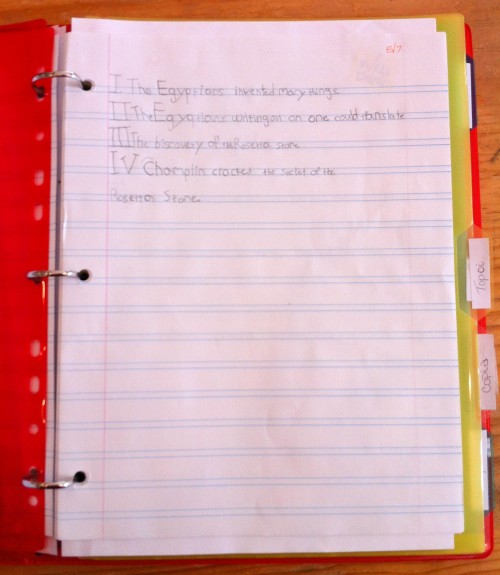 5/7
I The Egyptians invented many things
II The Egyptians writing on on one could translate
III The discovery of the Rosetta stone
IV Champlin cracked the secret of the
Rosettas Stone.
Topoi
Copia